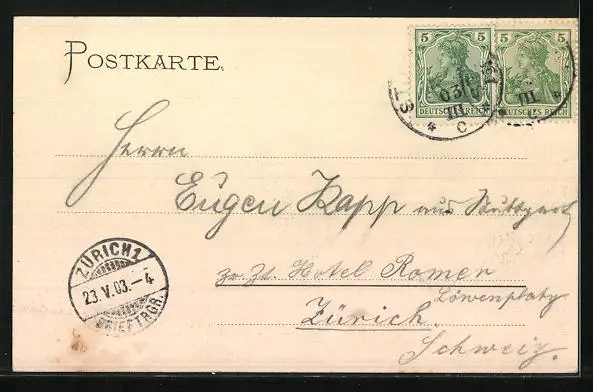 POSTKARTE.
5 5
DEUTSCHES REICH DEUTSCHES REICH
ST
03
III III
* C * *
Herrn
Eugen Kapp aus Stuttgart
ZÜRICH 1
23.V.03.–4
BRIEFTRGR.
zr. Zt. Hotel Romer
Löwenplatz
Zürich.
Schweiz.